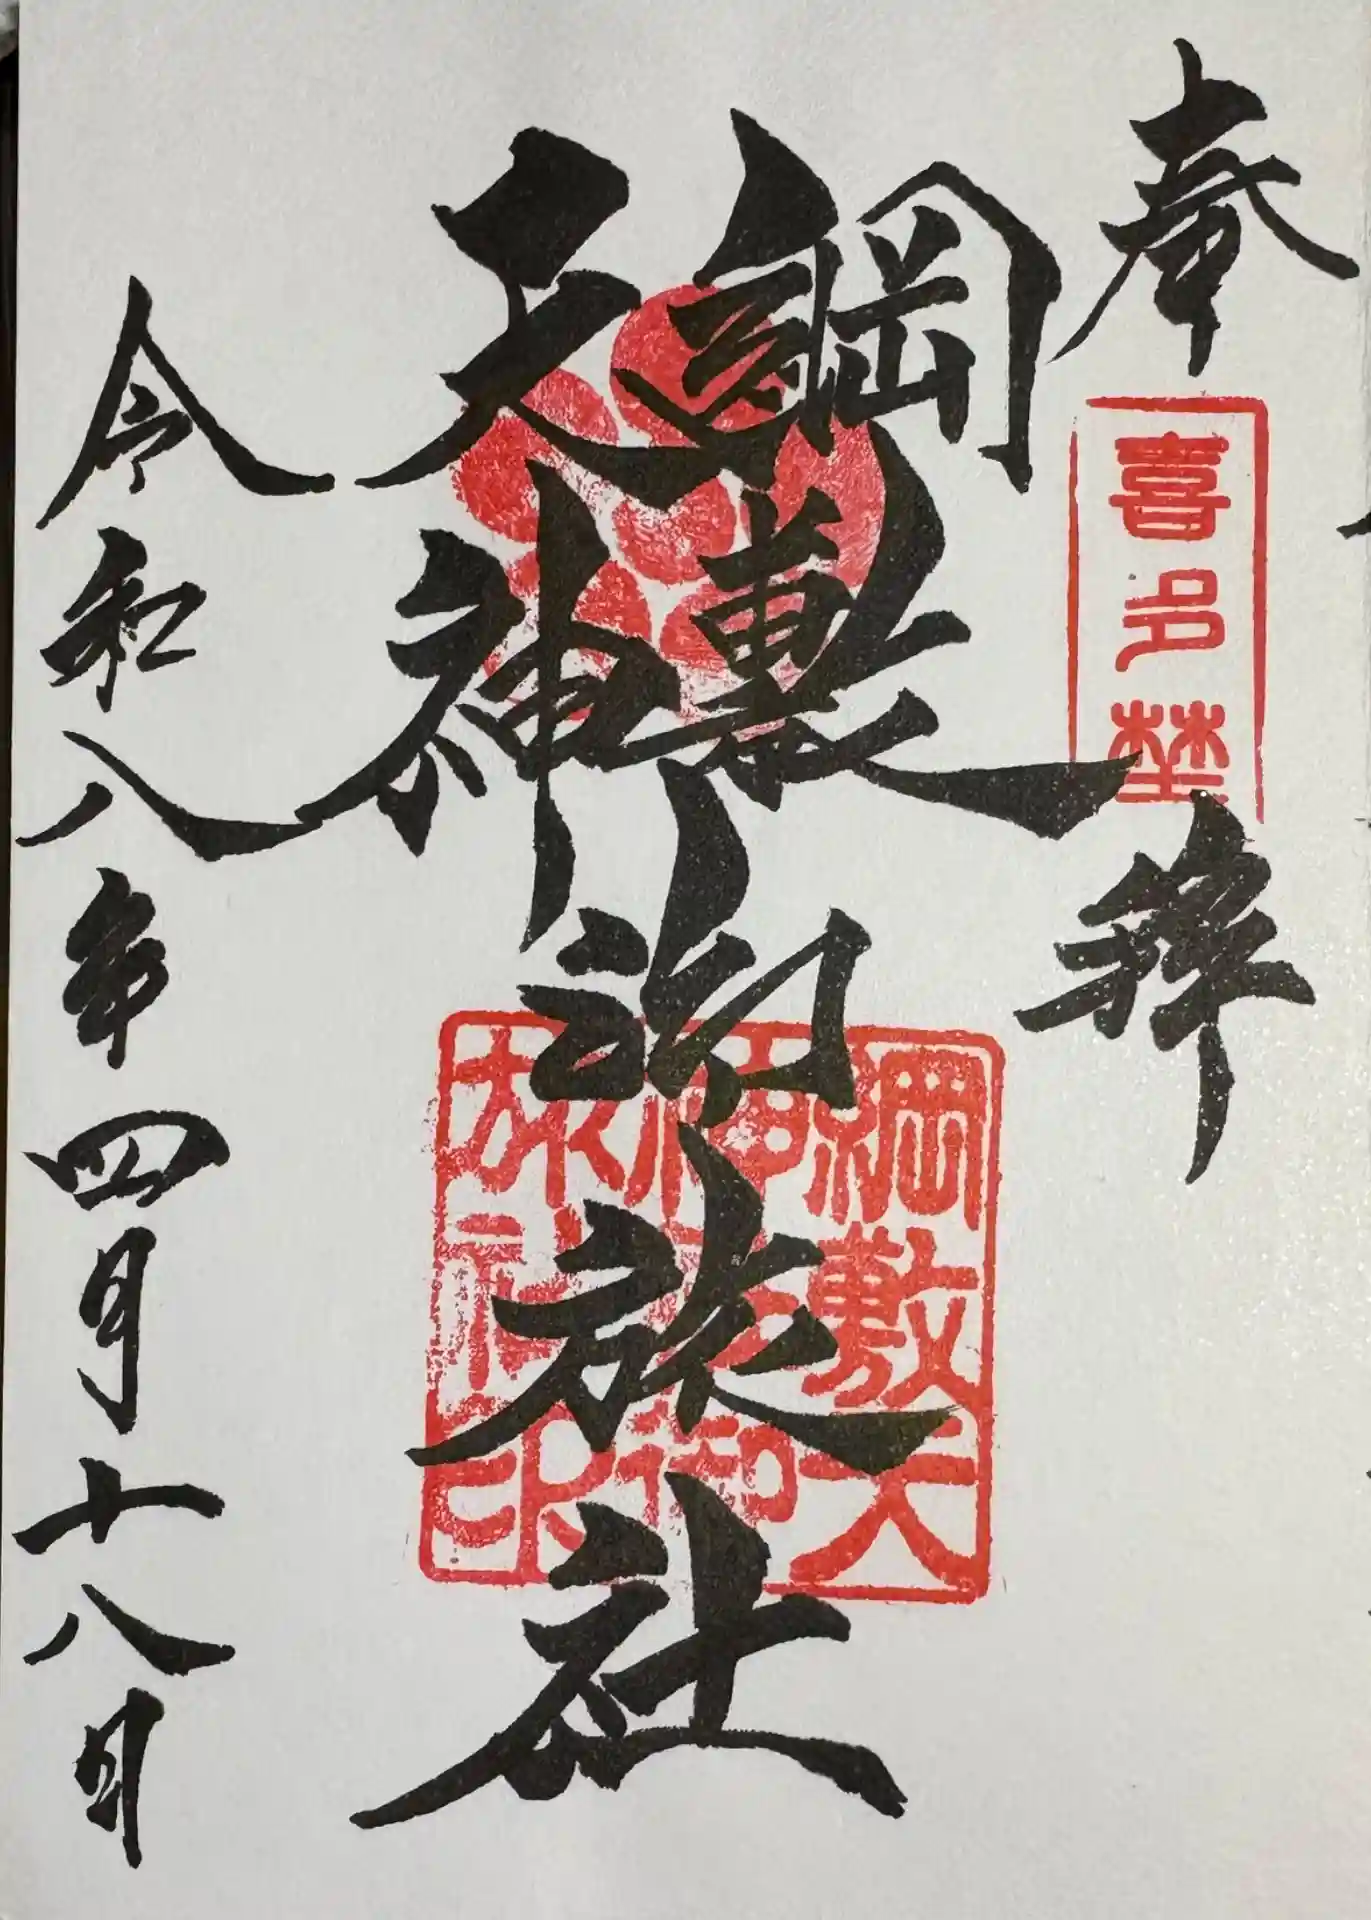 奉拝
喜多埜
綱敷
天神
御旅社
綱敷天
神御
旅社印
令和八年四月十八日